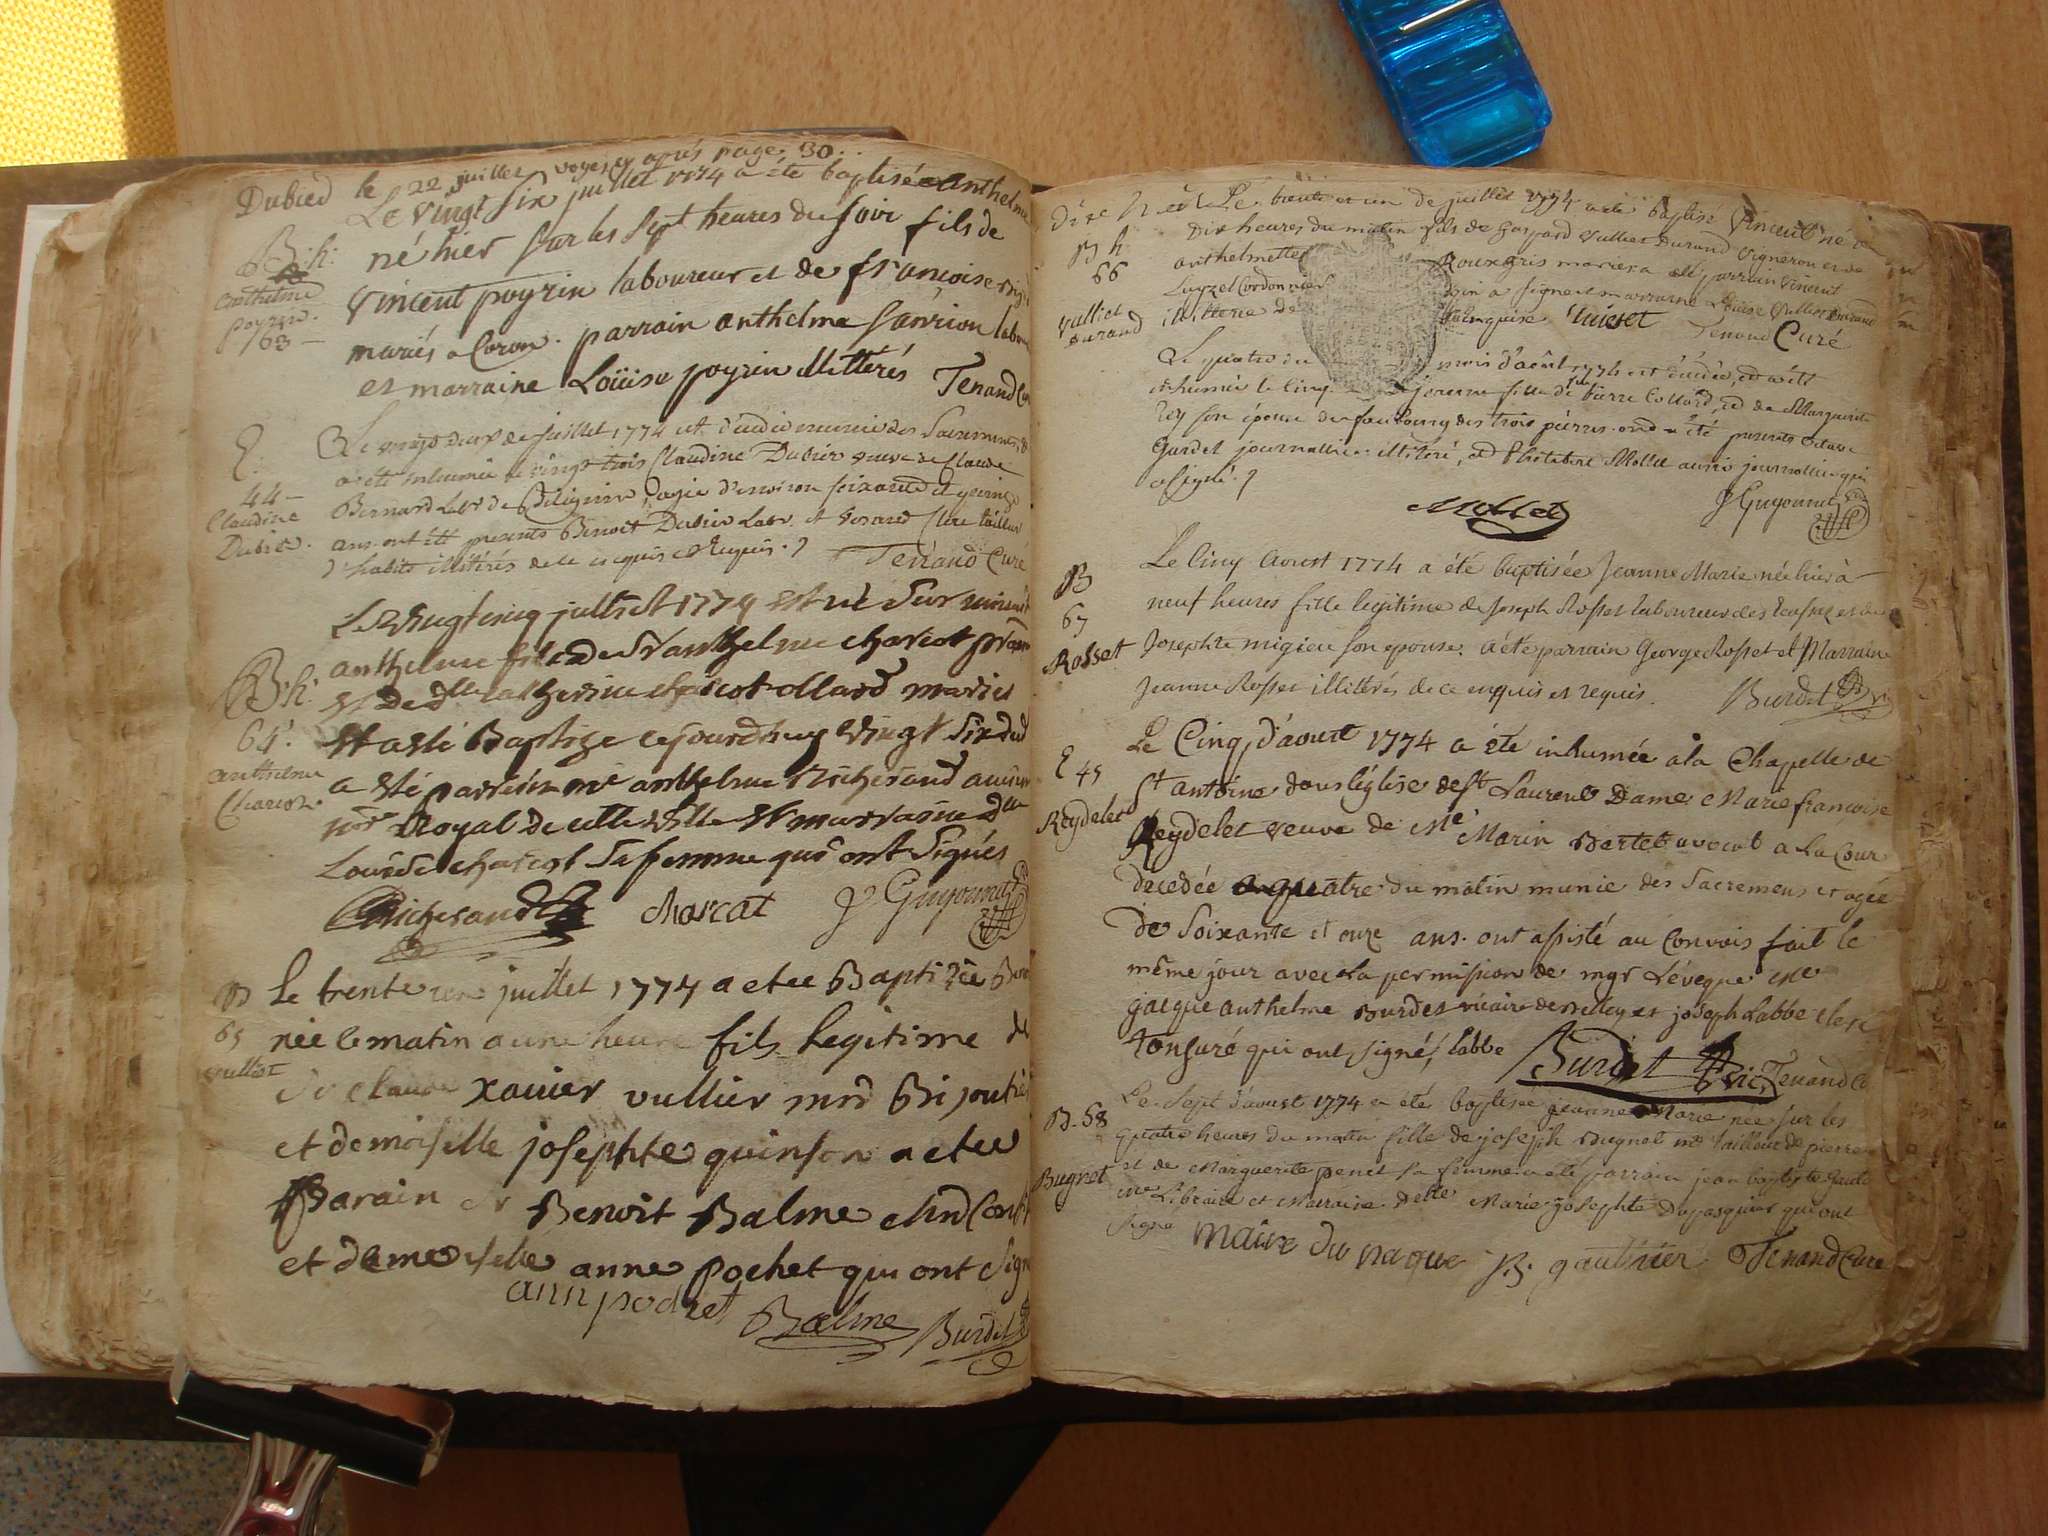 Dubied le 22 juillet voyez cy après page 30.
Le vingt six juillet 1774 a été baptisé anthelme
B. h.
anthelme
poyrin.
63
né hier sur les sept heures du soir fils de
vincent poyrin laboureur et de françoise
mariés a Coron. parrain anthelme laboureur
et marraine Loüise poyrin illittérés Tenand Curé
E.
44
Claudine
Dubied.
Le vingt deux de juillet 1774 est décédée munie des Sacremens, &
a été inhumée le vingt trois Claudine Dubied veuve de Claude
Bernard Labr de agée d'environ soixante et quinze
ans. ont été presents Benoit Dubied Labr. et tailleur
d'habits illitérés de ce enquis et Requis.
Tenand Curé
Le vingt cinq juillet 1774 est né sur minuit
B. h.
64.
anthelme
Charcot.
anthelme fils de Sr anthelme charcot
et de dlle catherine charcot ollard mariés
et a esté Baptize cejourdhuy vingt six dud
a esté parrein mre anthelme Richerand
Royal de cette ville et marraine dlle
Louïse charcot sa femme qui ont signés
Richerand charcat J Guyonnet
B
65
vulliet
Le trente juillet 1774 a etee Baptizée
née le matin a une heure fils legitime de
Sr claude xavier vullier mrd Bijoutier
et demoiselle josephte quinson a etee
Parain Sr Benoit Balme
et demoiselle anne pochet qui ont signe
ann pochet Balme Burdet
B h
66
Vulliet
durand
Le trente et un de juillet 1774 a été baptisé Vincent né a
Dix heures du matin fils de Gaspard Vulliet Durand Vigneron et de
anthelmette Rouxgris mariés a été parrain Vincent
Cordonnier a signé et marraine Louise Vulliet Durand
illitterée de ce enquise Tenand Curé
Le quatre du mois d'août 1774 est décédée, et a été
inhumée le cinq fille de pierre Collard, et de Marguerite
Rey son épouse du faubourg des trois pierres. ont été presents
Gardet journallier illitéré, et Mollet aussi journallier qui
a signé.
Mollet J Guyonnet
B
67
Rosset
Le cinq Aoust 1774 a été baptisée Jeanne Marie née hier à
neuf heures fille legitime de Joseph Rosset laboureur des et de
Josephte migieu son epouse. a été parrain George Rosset et Marraine
Jeanne Rosset illittérés de ce enquis et requis. Burdet
E 45
Reydelet
Le Cinq d'aoust 1774 a été inhumée a la Chapelle de
St antoine dans l'église de St Laurent Dame Marie françoise
Reydelet veuve de Me Marin Bertet avocat a la Cour
decedée a quatre du matin munie des Sacremens et agée
de soixante et onze ans. ont assisté au Convois fait le
même jour avec la permission de mgr L'éveque Me
jacque anthelme Burdet vicaire de Belley et joseph Labbe clerc
tonsuré qui ont signé, Labbe Burdet Vic, Tenand Cu
B. 58
Bugnet
Le Sept d'aoust 1774 a été baptisee jeanne Marie née sur les
quatre heures du matin fille de joseph Bugnet me tailleur de pierre
et de Marguerite penet sa femme a été parrain jean baptiste
Me Libraire et Marraine Delle Marie josephte Dupasquier qui ont
Signé B. Tenand Curé